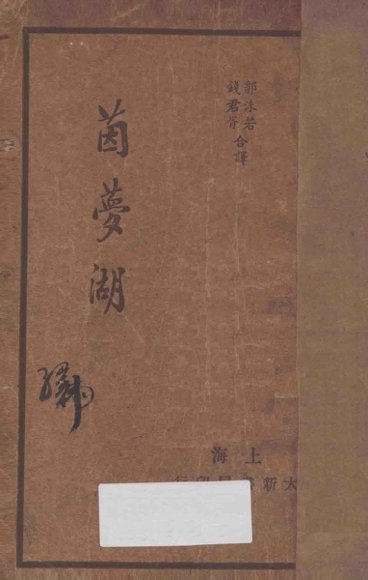 郭沫若
錢君胥 合譯
茵夢湖
上海
大新